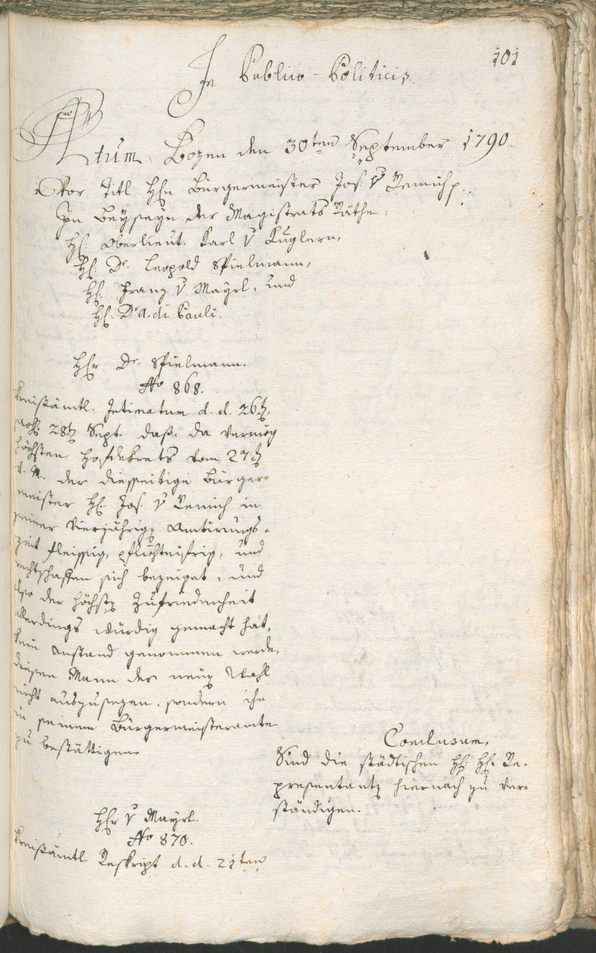 101
In Publico-Politicis.
Actum Bozen den 30ten September 1790.
Vor Titl Hhn Bürgermeister Jos v Remich p.
In Beyseyn der Magistrats Räthe:
Hh. Oberlieut. Karl v Kuglern,
Hh. Dr. Leopold Spielmann,
Hh. Franz v Mayrl, und
Hh. D: A. di Pauli.
Hhr Dr. Spielmann.
No 868.
Kreisämtl. Intimatum d. d. 26t
28t Sept. daß, da vermög
höchsten Hofdekrets vom 27t
v. M. der diesseitige Bürger-
meister Hh. Jos. v Remich in
seiner vierjährig Amtirungs-
zeit fleissig, pflichteifrig, und
rechtschaffen sich bezeiget, und
also der höchst Zufriedenheit
allerdings würdig gemacht hat,
kein Anstand genommen werde,
diesen Mann der neuen Wahl
nicht auszusezen, sondern ihn
in seinem Bürgermeisteramte
zu bestättigen.
Conclusum.
Sind die städtischen Hh. Hh. Re-
presentant hiernach zu ver-
ständigen.
Hhr v Mayrl.
No 870.
Kreisämtl Reskript d. d. 21ten